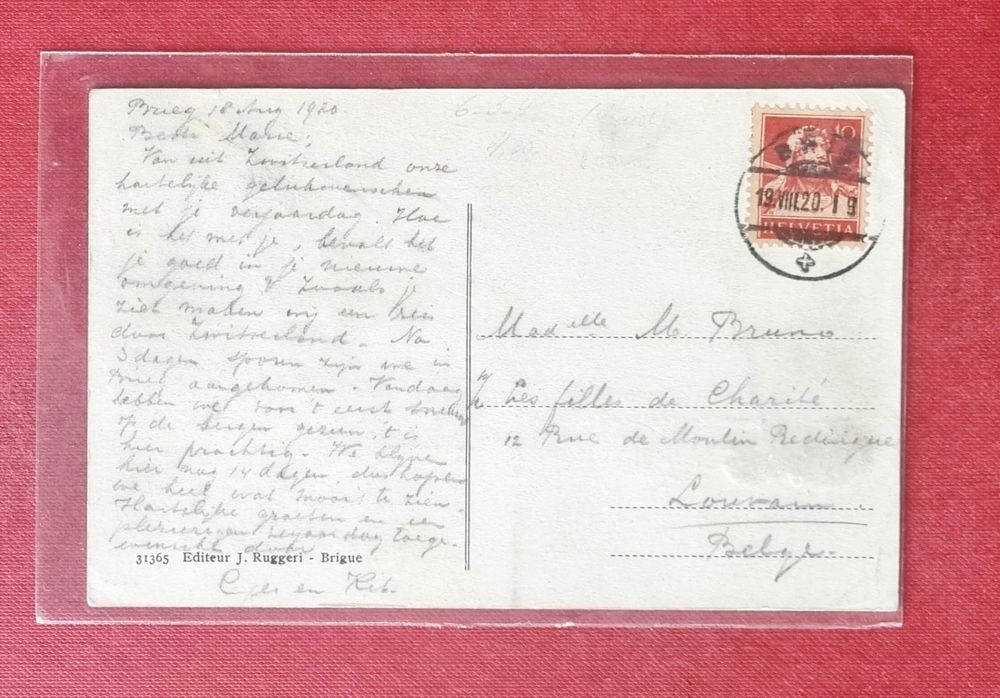 Brieg 18 Aug 1920
Beste Marie,
Van uit Zwitserland onze
hartelijke gelukwenschen
met je verjaardag. Hoe
is het met je, bevalt het
je goed in je nieuwe
omgeving? Zooals je
ziet maken wij een reis
door Zwitserland. Na
3 dagen sporen zijn we in
Brieg aangekomen. Vandaag
hebben we voor 't eerst sneeuw
op de bergen gezien, 't is
hier prachtig. We blijven
hier nog 14 dagen, dus hopen
we heel wat moois te zien.
Hartelijke groeten en een
plezierigen verjaardag toege-
wenscht door
en
31365 Editeur J. Ruggeri - Brigue
10
19.VIII.20.
HELVETIA
Mad elle M. Bruno
Les filles de Charité
12 Rue de Moulin
Louvain
Belge